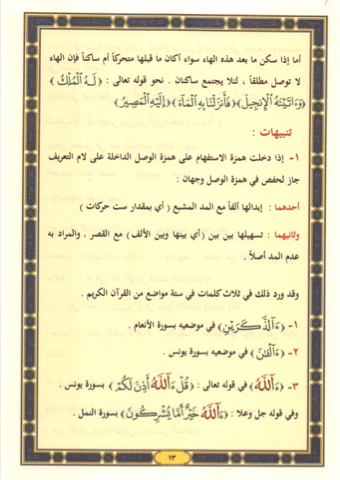 أما إذا سكن ما بعد هذه الهاء سواء أكان ما قبلها متحركاً أم ساكناً فإن الهاء
لا توصل مطلقاً ، لئلا يجتمع ساكنان . نحو قوله تعالى : ﴿ لَهُ الْمُلْكُ ﴾
﴿ وَءَاتَيْنَهُ الْإِنجِيلَ ﴾ ﴿ فَأَنزَلْنَا بِهِ الْمَآءَ ﴾ ﴿ إِلَيْهِ الْمَصِيرُ ﴾
تنبيهات :
١- إذا دخلت همزة الاستفهام على همزة الوصل الداخلة على لام التعريف
جاز لحفص في همزة الوصل وجهان :
أحدهما : إبدالها ألفاً مع المد المشبع ( أي بمقدار ست حركات )
وثانيهما : تسهيلها بين بين ( أي بينها وبين الألف ) مع القصر ، والمراد به
عدم المد أصلاً .
وقد ورد ذلك في ثلاث كلمات في ستة مواضع من القرآن الكريم .
١- ﴿ ءَآلذَّكَرَيْنِ ﴾ في موضعيه بسورة الأنعام .
٢- ﴿ ءَآلْـَٰنَ ﴾ في موضعيه بسورة يونس .
٣- ﴿ ءَآللَّهُ ﴾ في قوله تعالى : ﴿ قُلْ ءَآللَّهُ أَذِنَ لَكُمْ ﴾ بسورة يونس .
وفي قوله جل وعلا : ﴿ ءَآللَّهُ خَيْرٌ أَمَّا يُشْرِكُونَ ﴾ بسورة النمل .
١٣